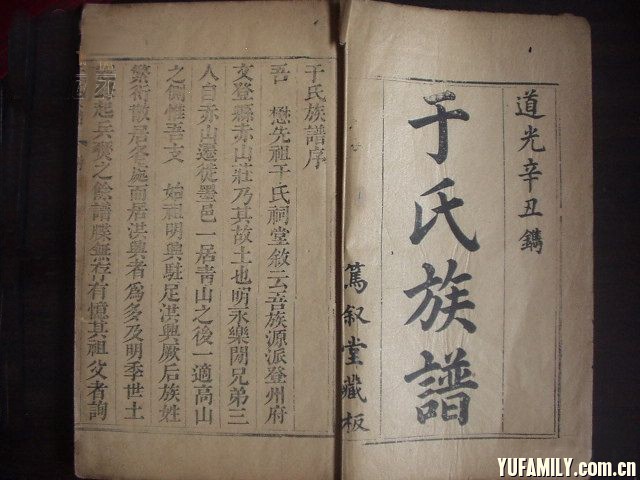 道光辛丑鐫
于氏族譜
篤叙堂藏板
于氏族譜序
吾 懋先祖于氏祠堂敘云吾族源派登州府
文登縣赤山莊乃其故土也明永樂間兄弟三
人自赤山遷徙墨邑一居青山之後一適高山
之側惟吾文 始祖明興駐足洪興厥后族姓
繁衍散居各處而居洪興者為多及明季世土
起兵燹之餘譜牒無存有憶其祖父者詢
YUFAMILY.com.cn